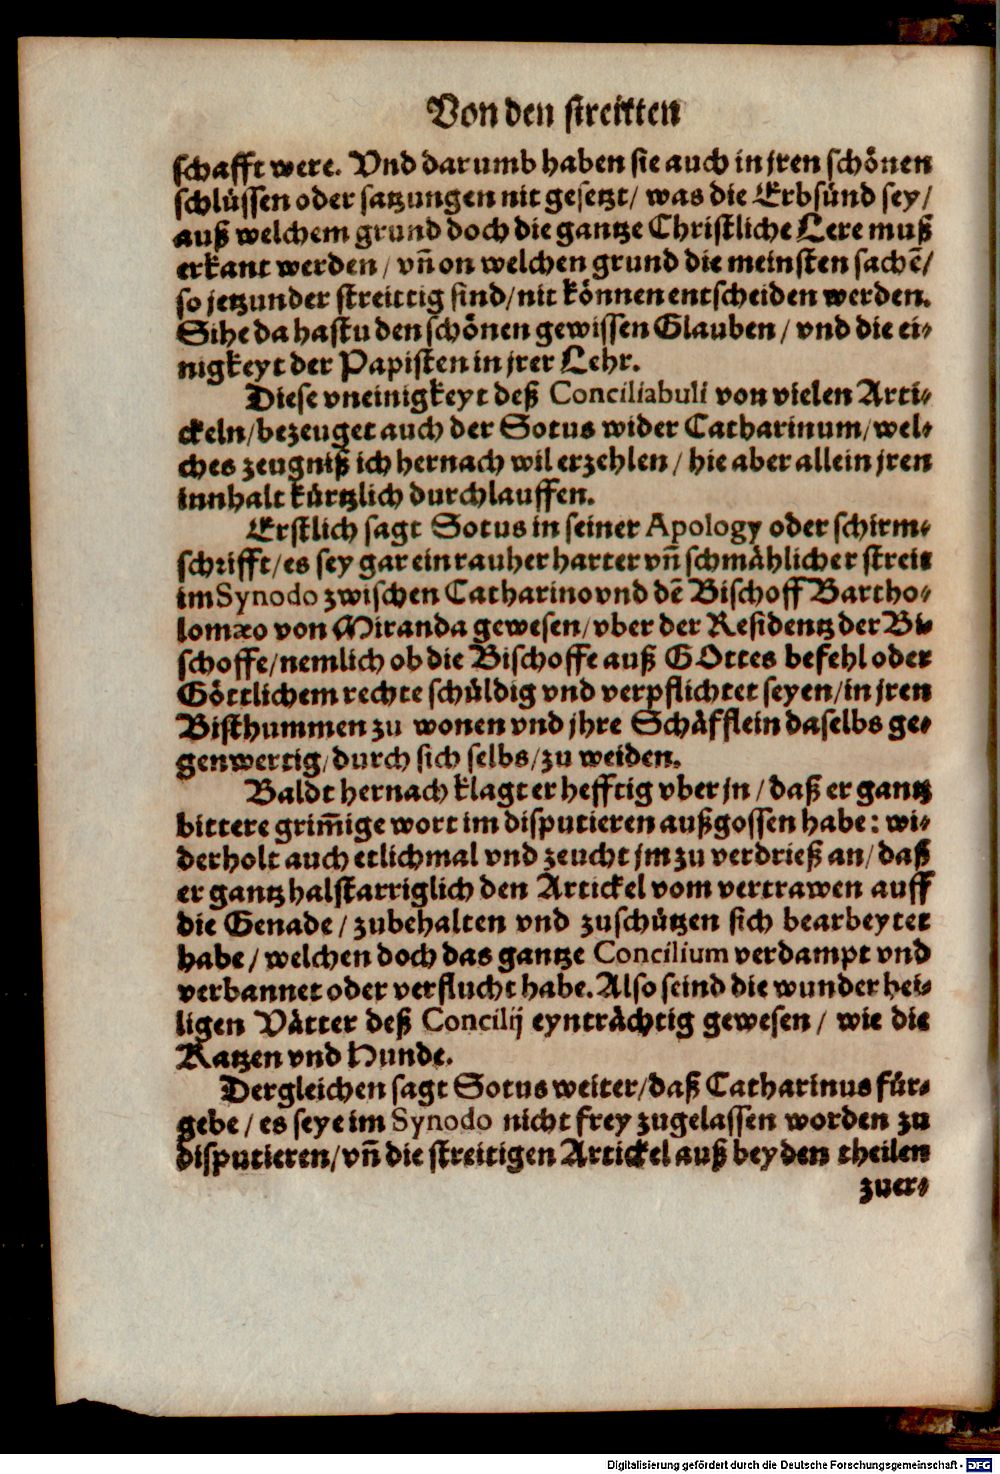 Von den streitten
schafft were. Vnd darumb haben sie auch in jren schönen
schlüssen oder satzungen nit gesetzt/ was die Erbsünd sey/
auß welchem grund doch die gantze Christliche Lere muß
erkant werden/ vñ on welchen grund die meinsten sachẽ/
so jetzunder streittig sind/ nit können entscheiden werden.
Sihe da hastu den schönen gewissen Glauben/ vnd die ei-
nigkeyt der Papisten in jrer Lehr.
Diese vneinigkeyt deß Conciliabuli von vielen Arti-
ckeln/ bezeuget auch der Sotus wider Catharinum/ wel-
ches zeugniß ich hernach wil erzehlen/ hie aber allein jren
innhalt kürtzlich durchlauffen.
Erstlich sagt Sotus in seiner Apology oder schirm-
schrifft/ es sey gar ein rauher harter vñ schmählicher streit
im Synodo zwischen Catharino vnd dẽ Bischoff Bartho-
lomæo von Miranda gewesen/ vber der Residentz der Bi-
schoffe/ nemlich ob die Bischoffe auß GOttes befehl oder
Göttlichem rechte schüldig vnd verpflichtet seyen/ in jren
Bisthummen zu wonen vnd jhre Schäfflein daselbs ge-
genwertig/ durch sich selbs/ zu weiden.
Baldt hernach klagt er hefftig vber jn/ daß er gantz
bittere grim̃ige wort im disputieren außgossen habe: wi-
derholt auch etlichmal vnd zeucht jm zu verdrieß an/ daß
er gantz halstarriglich den Artickel vom vertrawen auff
die Genade/ zubehalten vnd zuschützen sich bearbeytet
habe/ welchen doch das gantze Concilium verdampt vnd
verbannet oder verflucht habe. Also seind die wunder hei-
ligen Vätter deß Concilij eynträchtig gewesen/ wie die
Katzen vnd Hunde.
Dergleichen sagt Sotus weiter/ daß Catharinus für-
gebe/ es seye im Synodo nicht frey zugelassen worden zu
disputieren/ vñ die streitigen Artickel auß beyden theilen
zuer-
Digitalisierung gefördert durch die Deutsche Forschungsgemeinschaft - DFG